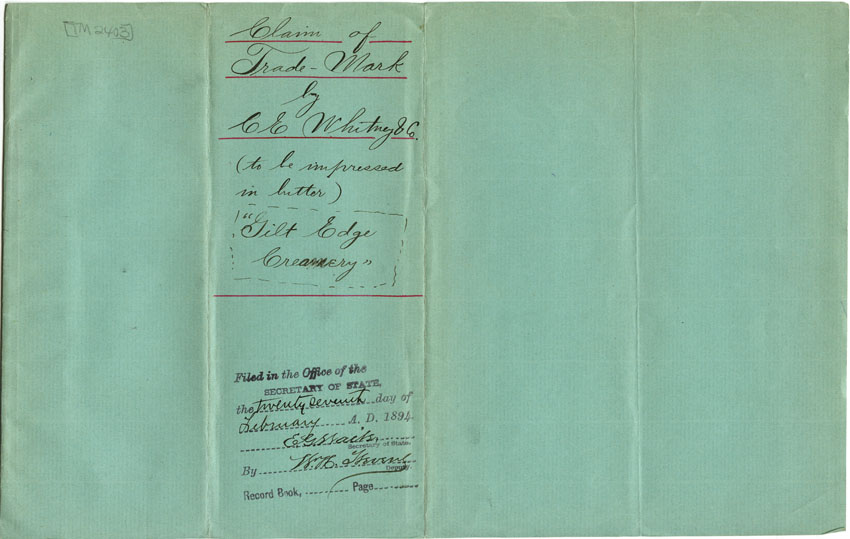 [TM 2403]
Claim of
Trade-Mark
by
C E Whitney & Co.
(to be impressed
in butter)
"Gilt Edge
Creamery"
Filed in the Office of the
SECRETARY OF STATE,
the twenty seventh day of
February A. D. 1894.
E G Waite
Secretary of State.
By W. H.
Deputy.
Record Book, Page